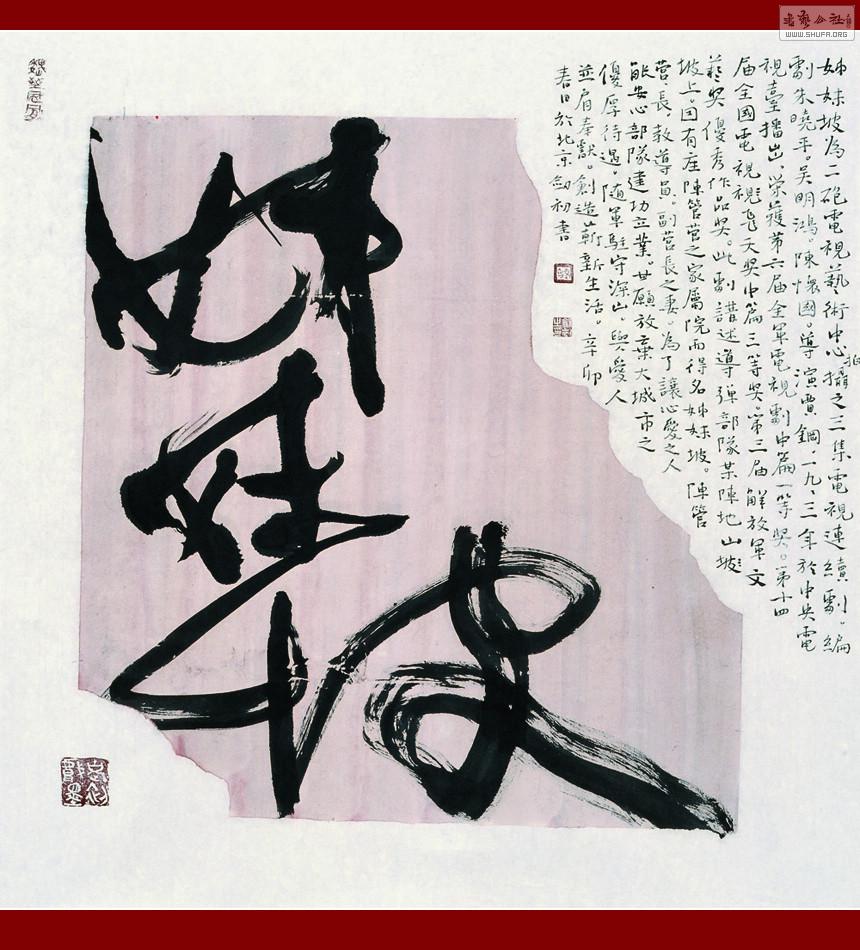 姊妹坡
姊妹坡為二砲電視藝術中心攝之三集電視連續劇。編
拍
劇朱曉平。吳明鴻。陳懷國。導演賈鋼。一九九三年於中央電
視臺播出，榮獲第六届全軍電視劇中篇一等奖。第十四
届全國電視飛天奖中篇三等奖。第三届解放軍文
藝奖優秀作品奖。此劇講述導弹部隊某陣地山坡
坡上。因有座陣管营之家屬院而得名姊妹坡。陣管
营長，教導員。副营長之妻。為了讓心愛之人
能安心部隊建功立業。甘願放棄大城市之
優厚待遇。随軍駐守深山。與愛人
並肩奉獻。創造嶄新生活。辛卯
春日於北京劍初書
WWW.SHUFA.ORG